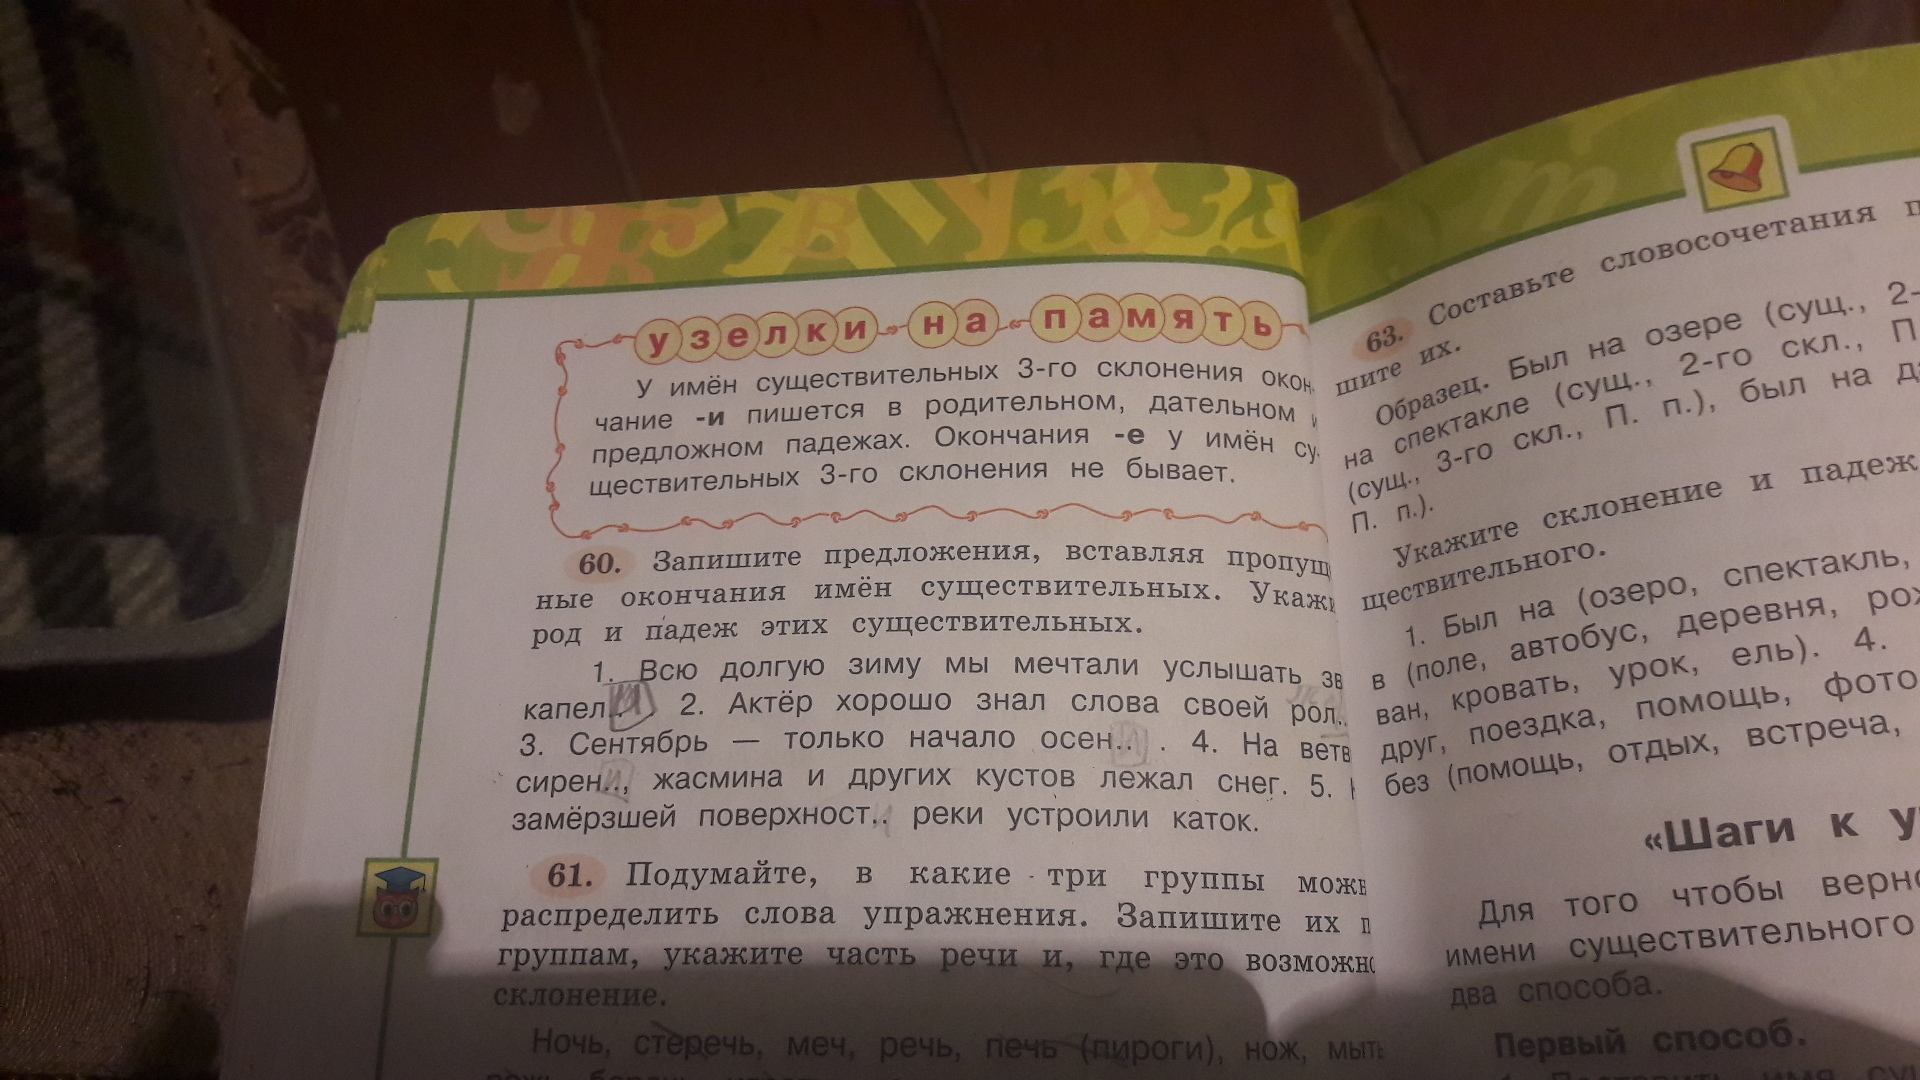 узелки на память
У имён существительных 3-го склонения окон
чание -и пишется в родительном, дательном и
предложном падежах. Окончания -е у имён су-
ществительных 3-го склонения не бывает.
60. Запишите предложения, вставляя пропущ
ные окончания имён существительных. Укажи
род и падеж этих существительных.
1. Всю долгую зиму мы мечтали услышать зв
капел.. . 2. Актёр хорошо знал слова своей рол..
3. Сентябрь — только начало осен.. . 4. На ветв
сирен.., жасмина и других кустов лежал снег. 5.
замёрзшей поверхност.. реки устроили каток.
61. Подумайте, в какие три группы можн
распределить слова упражнения. Запишите их п
группам, укажите часть речи и, где это возможно
склонение.
Ночь, стеречь, меч, речь, печь (пироги), нож, мыть
63. Составьте словосочетания п
шите их.
Образец. Был на озере (сущ., 2-
на спектакле (сущ., 2-го скл., П.
(сущ., 3-го скл., П. п.), был на да
П. п.).
Укажите склонение и падеж
ществительного.
1. Был на (озеро, спектакль,
в (поле, автобус, деревня, рож
ван, кровать, урок, ель). 4.
друг, поездка, помощь, фото
без (помощь, отдых, встреча,
«Шаги к у
Для того чтобы верно
имени существительного
два способа.
Первый способ.